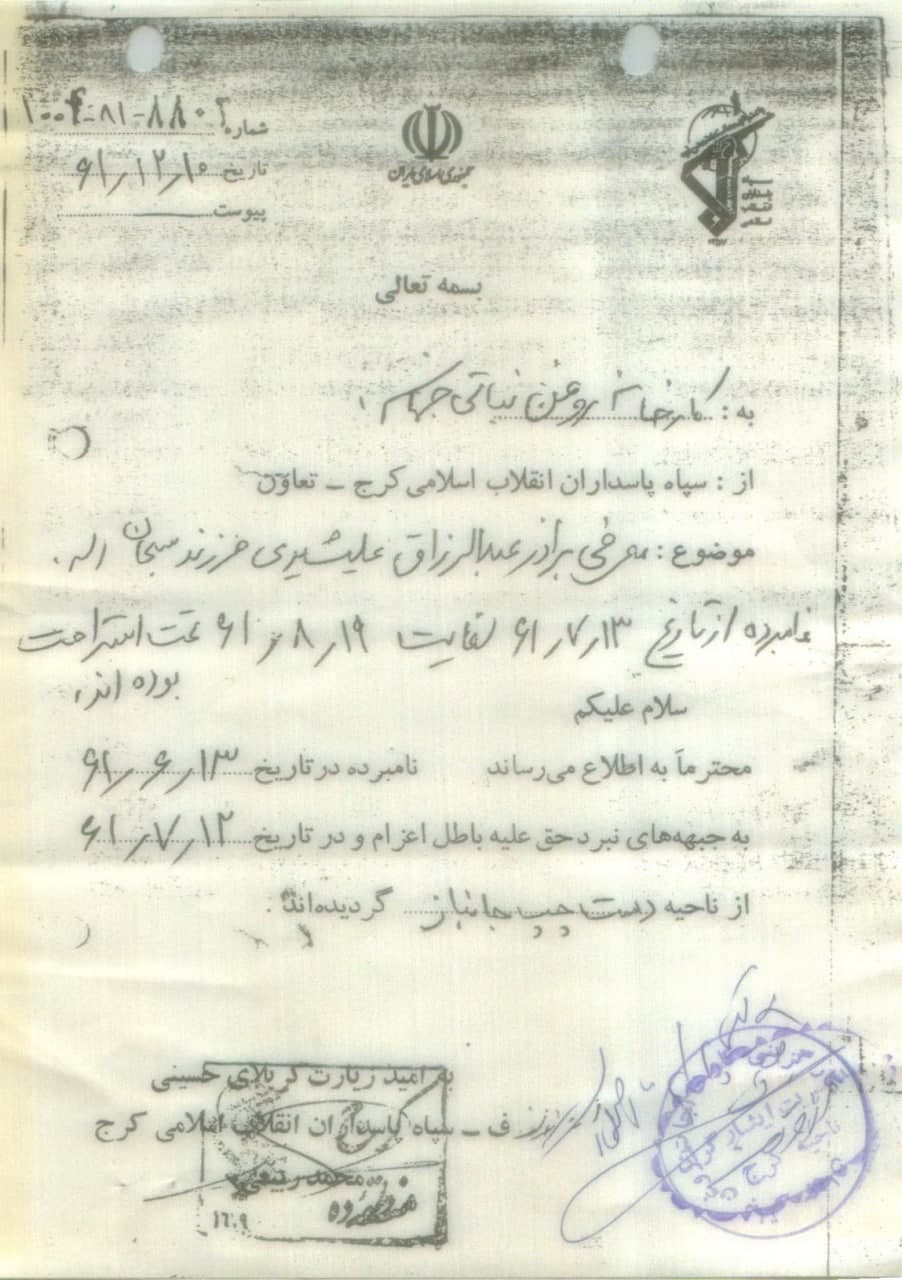 شماره ۱۰۰۴-۸۱-۸۸۰۲
تاریخ ۶۱/۱۲/۱۰
پیوست
جمهوری اسلامی ایران
سپاه پاسداران انقلاب اسلامی
بسمه تعالی
به : کارخانه روغن نباتی جهان
از : سپاه پاسداران انقلاب اسلامی کرج – تعاون
موضوع : معرفی برادر عبدالرزاق علیشیری فرزند سبحان اله .
نامبرده از تاریخ ۶۱/۷/۱۳ لغایت ۶۱/۸/۱۹ تحت استراحت
بوده اند
سلام علیکم
محترماً به اطلاع می‌رساند نامبرده در تاریخ ۶۱/۶/۱۳
به جبهه‌های نبرد حق علیه باطل اعزام و در تاریخ ۶۱/۷/۱۲
از ناحیه دست چپ جانباز گردیده‌اند .
به امید زیارت کربلای حسینی
ف – سپاه پاسداران انقلاب اسلامی کرج
محمد ربیعی
۱۲۰۹